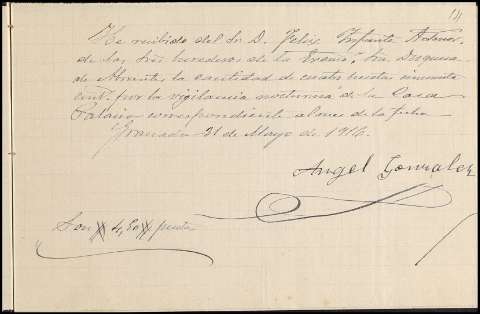 14
He recibido del Sr. D. Felix Infante Admor.
de los Sres. herederos de la Exma. Sra. Duquesa
de la cantidad de cuatro pesetas cincuenta
cent. por la vigilancia nocturna de la Casa
Palacio correspondiente al mes de la fecha
Granada 31 de Mayo de 1916.
Angel Gonzalez
Son # 4,50 # pesetas